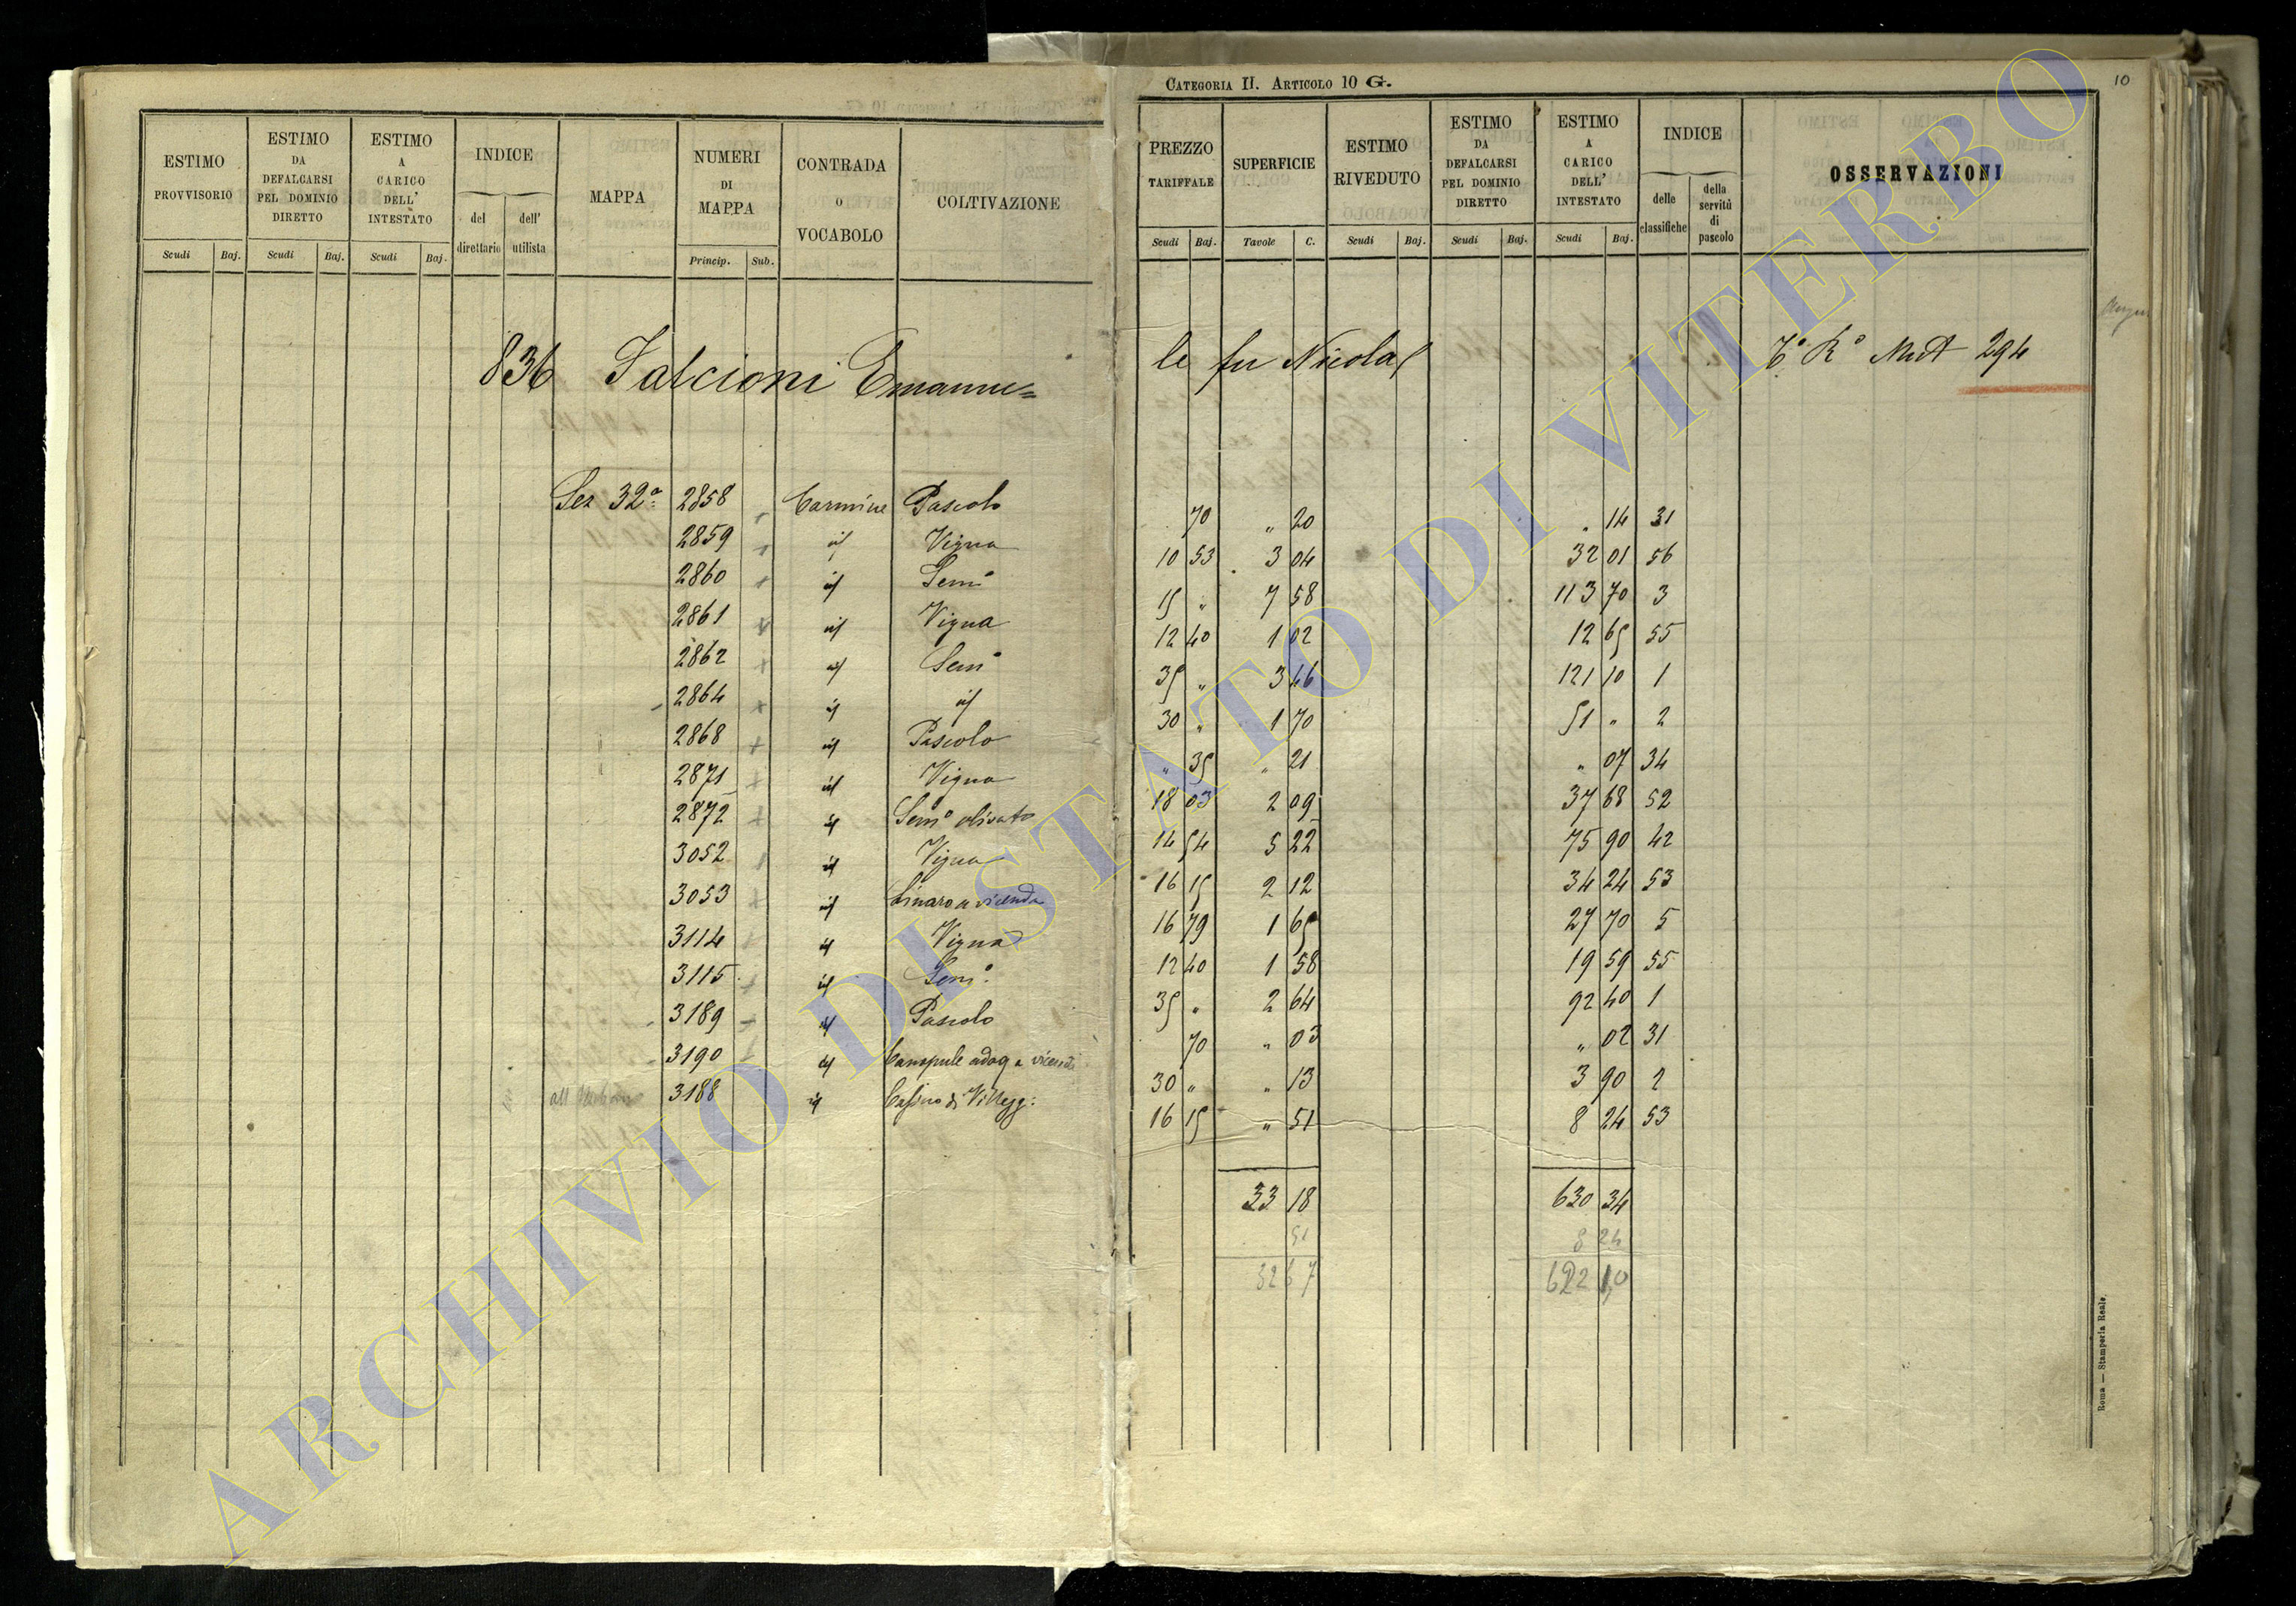 CATEGORIA II. ARTICOLO 10 G.
10
ESTIMO PROVVISORIO
ESTIMO DA DEFALCARSI PEL DOMINIO DIRETTO
ESTIMO A CARICO DELL' INTESTATO
INDICE
del direttario
dell' utilista
MAPPA
NUMERI DI MAPPA
CONTRADA O VOCABOLO
COLTIVAZIONE
PREZZO TARIFFALE
SUPERFICIE
ESTIMO RIVEDUTO
ESTIMO DA DEFALCARSI PEL DOMINIO DIRETTO
ESTIMO A CARICO DELL' INTESTATO
INDICE
delle classifiche
della servitù di pascolo
OSSERVAZIONI
Scudi Baj. Scudi Baj. Scudi Baj. Princip. Sub. Scudi Baj. Tavole C. Scudi Baj. Scudi Baj. Scudi Baj.
836 Falcioni Emanue= le fu Nicola T° R° Mut 294
Sez 32a 2858 Carmine Pascolo 70 " 20 " 14 31
2859 id Vigna 10 53 3 04 32 01 56
2860 id Sem° 15 " 7 58 113 70 3
2861 id Vigna 12 40 1 02 12 65 55
2862 id Sem° 35 " 3 46 121 10 1
2864 id id 30 " 1 70 51 " 2
2868 id Pascolo " 35 " 21 " 07 34
2871 id Vigna 18 03 2 09 37 68 52
2872 id Sem° olivato 14 54 5 22 75 90 42
3052 id Vigna 16 15 2 12 34 24 53
3053 id Linaro a vicenda 16 79 1 65 27 70 5
3114 id Vigna 12 40 1 58 19 59 55
3115 id Sem° 35 " 2 64 92 40 1
3189 id Pascolo 70 " 03 " 02 31
3190 id Canapule adaq a vicenda 30 " " 13 3 90 2
3188 id Casino di Villegg: 16 15 " 51 8 24 53
33 18 630 34
51 8 24
32 67 622 10
Roma — Stamperia Reale.
ARCHIVIO DI STATO DI VITERBO